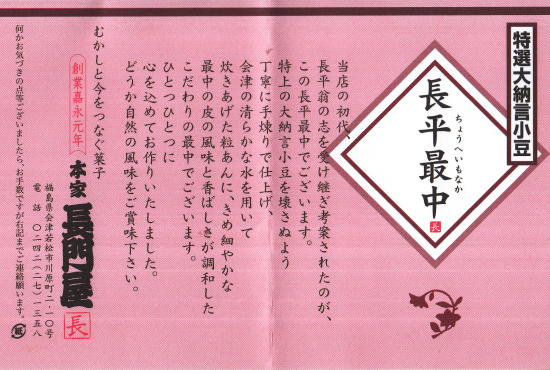 特選大納言小豆
ちょうへいもなか
長平最中
長
当店の初代、
長平翁の志を受け継ぎ考案されたのが、
この長平最中でございます。
特上の大納言小豆を壊さぬよう
丁寧に手煉りで仕上げ、
会津の清らかな水を用いて
炊きあげた粒あんに、きめ細やかな
最中の皮の風味と香ばしさが調和した
こだわりの最中でございます。
ひとつひとつに
心を込めてお作りいたしました。
どうか自然の風味をご賞味下さい。
むかしと今をつなぐ菓子
創業嘉永元年
本家
長門屋
長
福島県会津若松市川原町二-一〇号
電話 〇二四二(二七)一三五八
何かお気づきの点等ございましたら、お手数ですが右記までご連絡願います。
紙